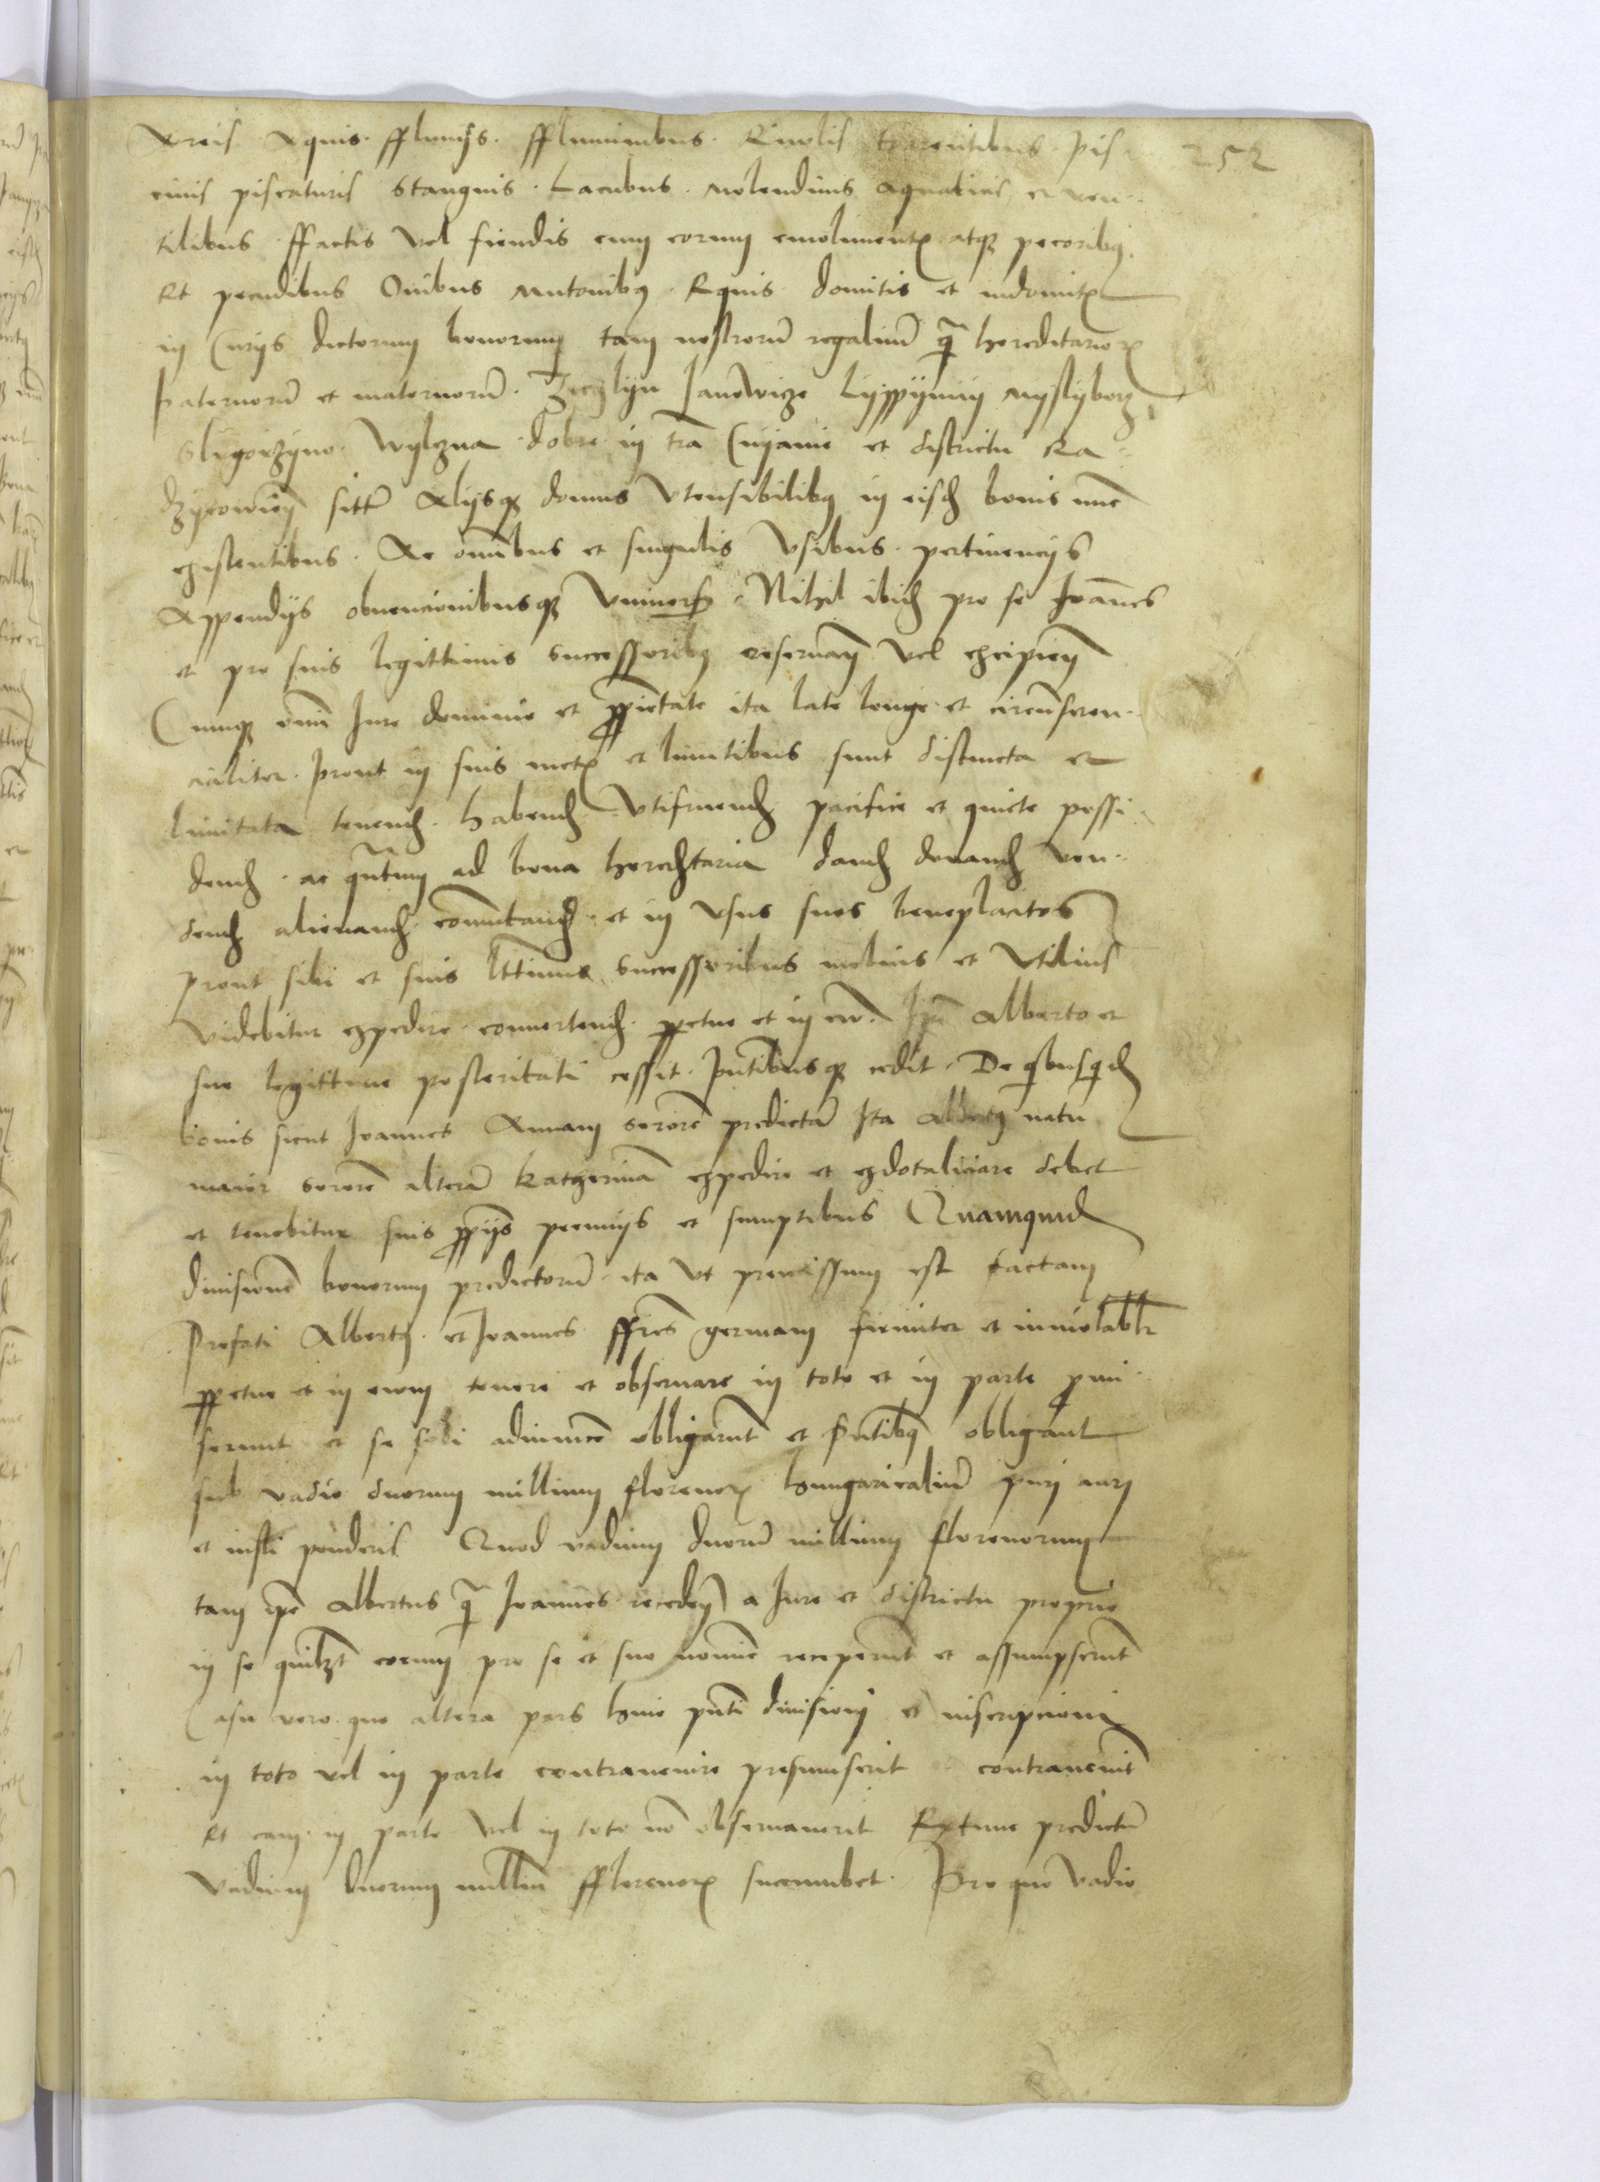 252
Areis Aquis. fflumijs. ffluminibus. Riuolis torrentibus. pis
cinis piscaturis stangnis. Lacubus. molendinis aquaticis et ven
tilibus. ffactis vel fiendis cum eorum emolimentis atque pecoribus.
Et pecudibus Ouibus mutonibus. Equis domitis et indomitis
in Curijs dictorum bonorum tam nostrorum regalium quam hereditariorum
paternorum et maternorum. Lyppyny Myslyborz
Wylczna. dobre in terra Cuijauie et districtu Ra
dzyeiowien sitis Alijsque domus Vtensibilibus in eisdem bonis nunc
existentibus. Ac omnibus et singulis Vsibus. pertinencijs
Appendijs obuencionibusque Vniuersis. Nihil ibidem pro se Joannes
et pro suis legittimis successoribus reseruan vel excipien
Cumque omni Jure dominio et proprietate ita late longe et circumferen
cialiter. prout in suis metis et limitibus sunt distincta et
limitata tenend. habend Vtifruend pacifice et quiete possi
dend. ac quantum ad bona hereditaria dand donand ven
dend alienand commutand. et in vsus suos beneplacitos
prout sibi et suis legittimis successoribus melius et Vtilius
videbitur expedire. conuertend. perpetue et in ewm. Ipsi Alberto et
sue legittime posteritati cessit. presentibusque cedit. De quibusquidem
bonis sicut Joannes Annam sororem predictam Ita Albertus natu
maior sororem alteram Katherinam expedire et exdotaliciare debet
et tenebitur suis proprijs pecunijs et sumptibus Quamquid
diuisionem bonorum predictorum. ita vt premissum est factam
Prefati Albertus. et Joannes ffratres germani firmiter et inuiolabiliter
perpetue et in ewm tenere et obseruare in toto et in parte promi
serunt et se sibi adinuicem obligarunt et presentibus obligant
sub vadio duorum millium florenorum hungaricalium puri auri
et iusti ponderis Quod vadium duorum millium florenorum
tam ipse Albertus quam Joannes receden a Jure et districtu proprio
in se quilibet eorum pro se et suo nomine receperunt et assumpserunt
Casu vero quo altera pars huic presenti diuisioni et inscripcioni
in toto vel in parte contrauenire presumserit contrauenerit
Et eam in parte vel in toto non obseruauerit Extunc predictum
Vadium duorum millium fflorenorum succumbet. Pro quo Vadio